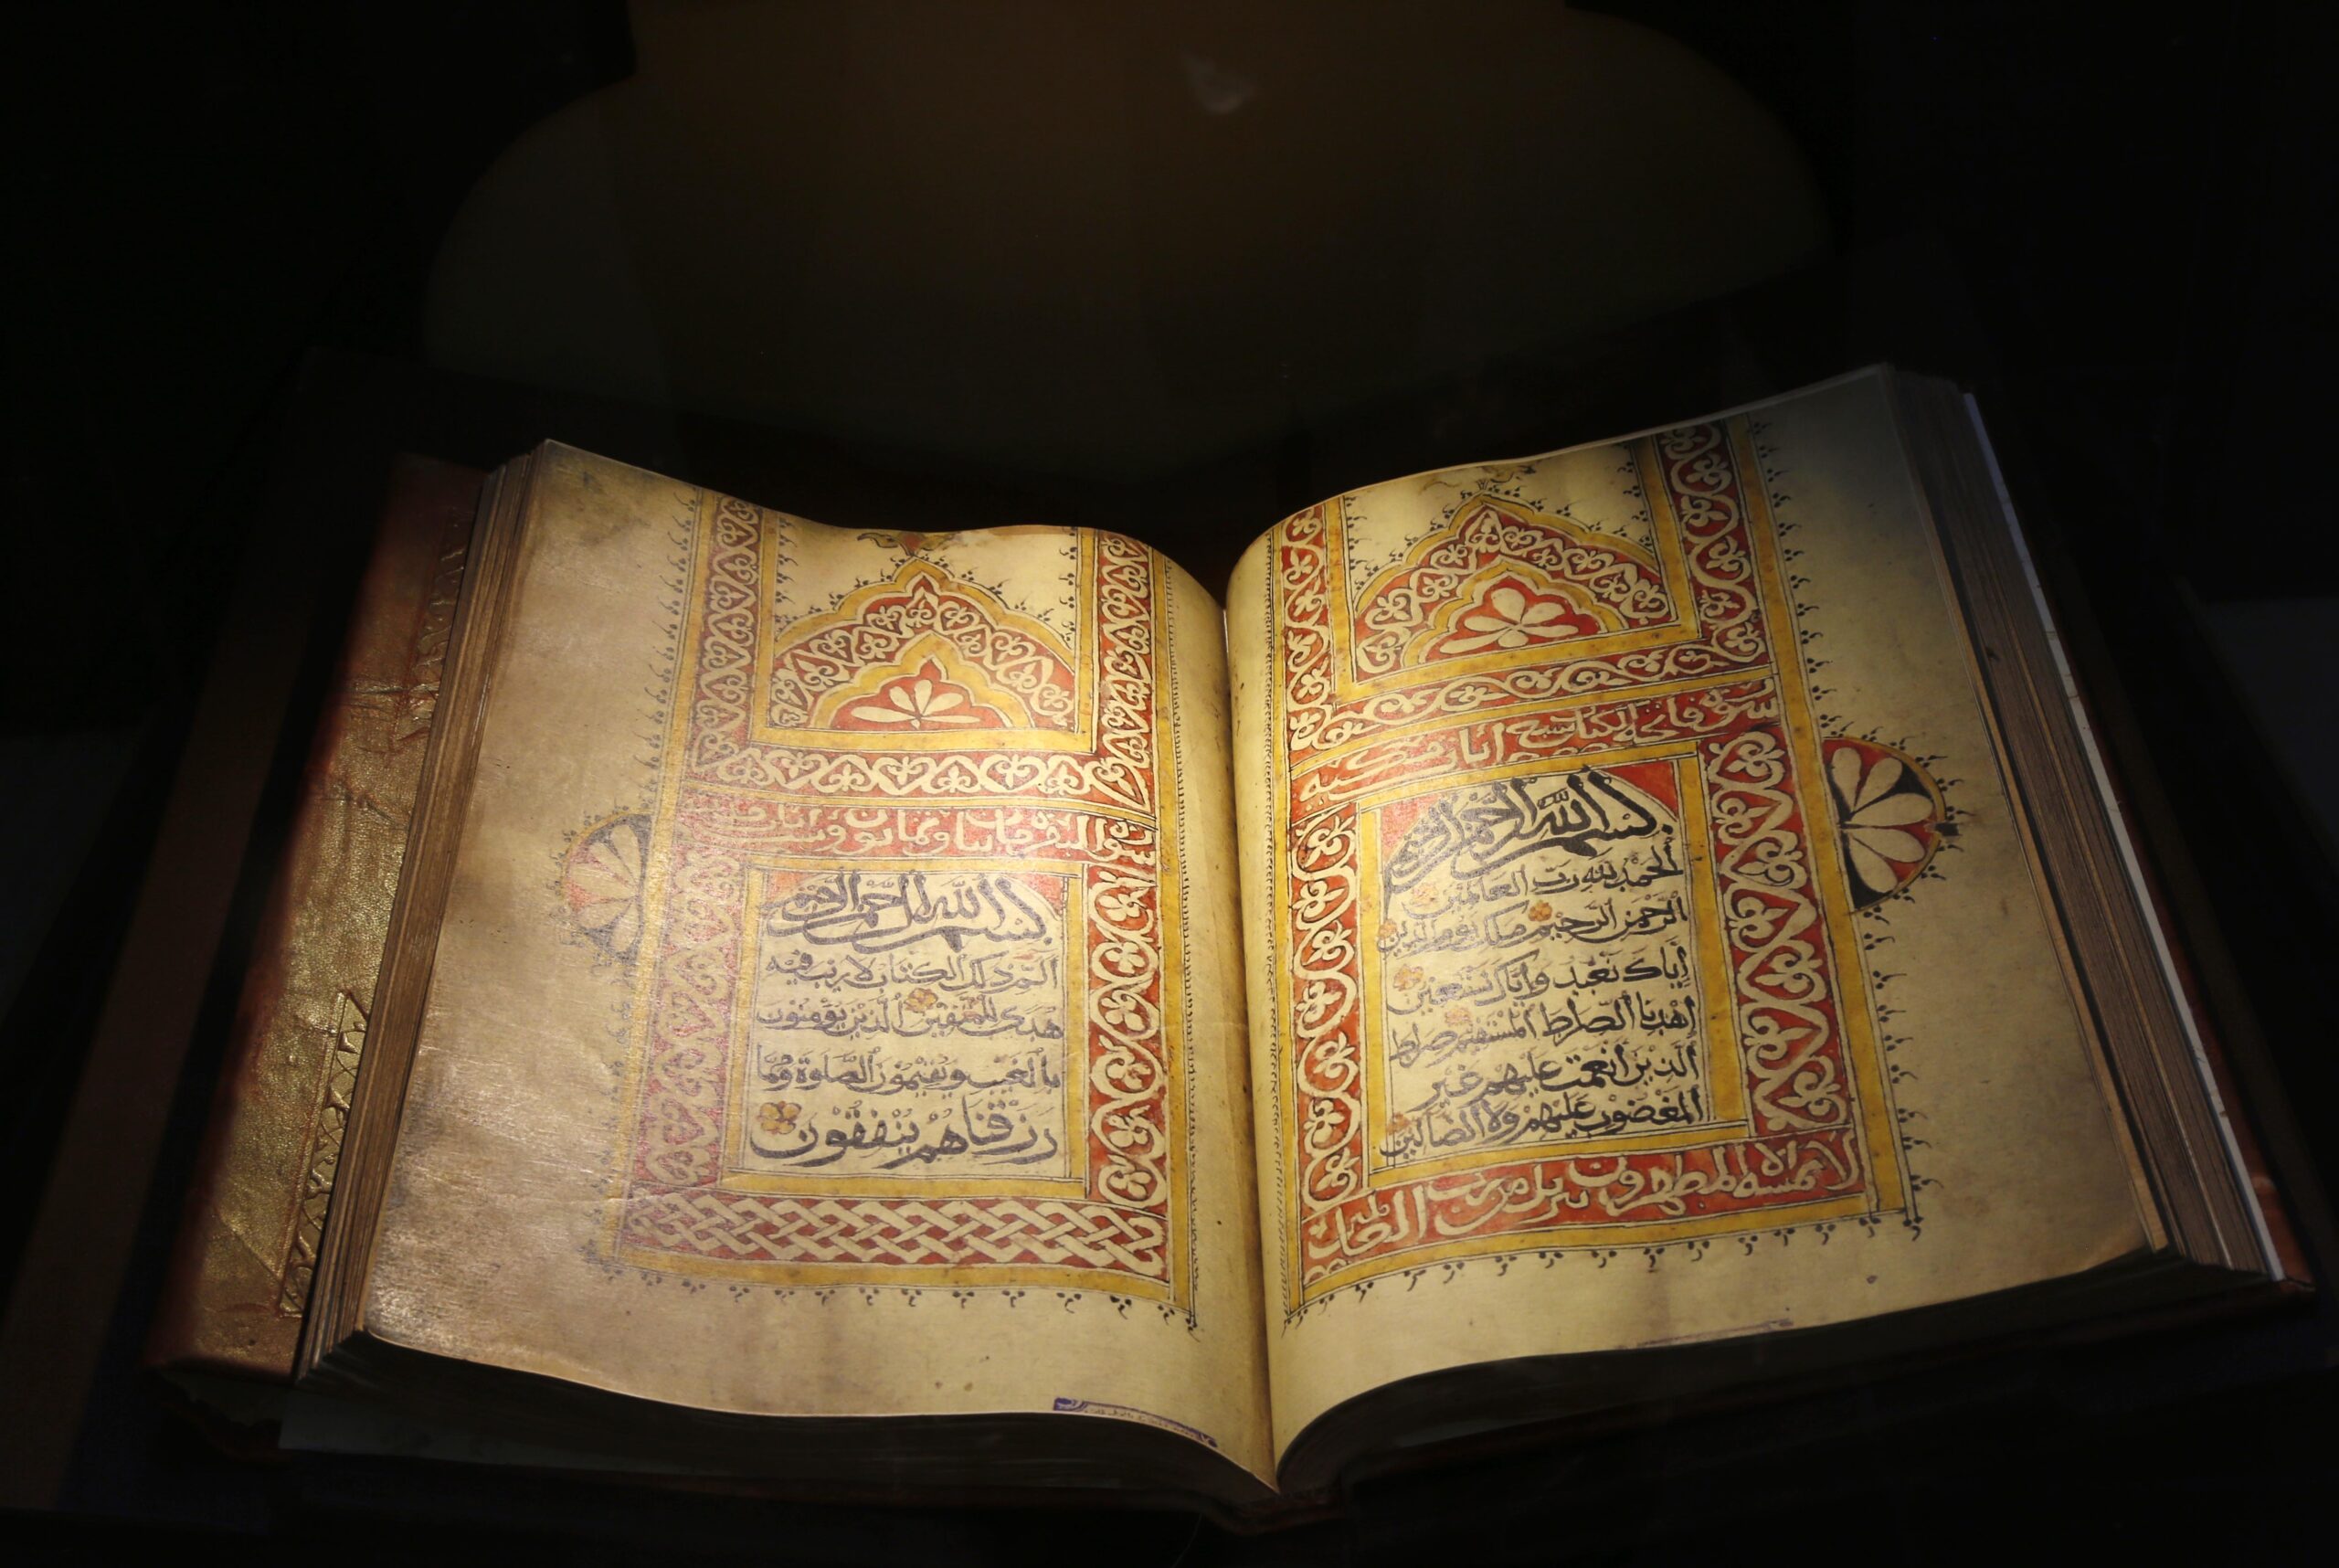 سورة فاتحة الكتاب سبع ايات مكية
بسم الله الرحمن الرحيم
ألحمد لله رب العالمين
ألرحمن ألرحيم ملك يوم الدين
إياك نعبد وإياك نستعين
إهدنا ألصراط ألمستقيم صراط
ألذين أنعمت عليهم غير
ألمغضوب عليهم ولا ألضالين
لا يمسه الا المطهرون تنزيل من رب العالمين
البقرة مايتا وثمانون
بسم الله الرحمن الرحيم
ألم ذلك الكتاب لا ريب فيه
هدى للمتقين ألذين يؤمنون
بالغيب ويقيمون ألصلوة ومما
رزقناهم ينفقون